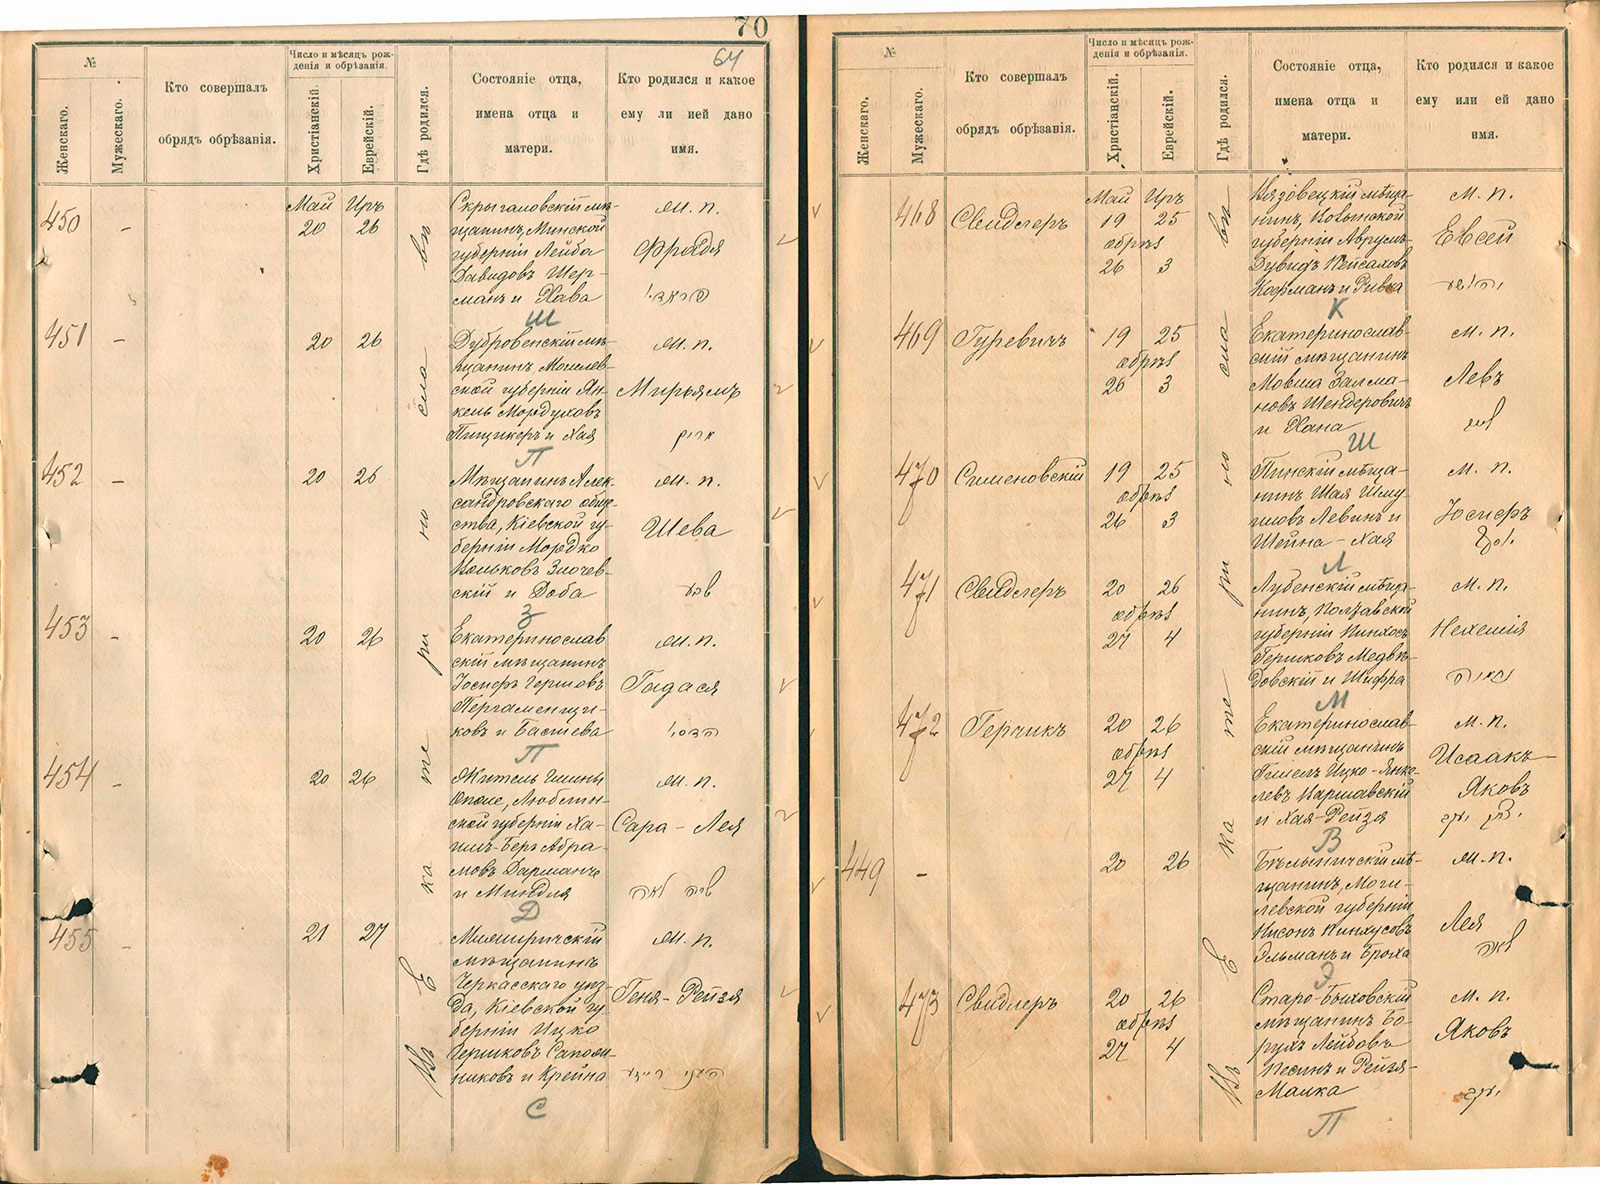 70
64
№
Женскаго.
Мужескаго.
Кто совершалъ
обрядъ обрѣзанія.
Число и мѣсяцъ рож-
денія и обрѣзанія.
Христіанскій.
Еврейскій.
Гдѣ родился.
Состояніе отца,
имена отца и
матери.
Кто родился и какое
ему ли ией дано
имя.
450
-
Май
20
Иръ
26
Скрыгаловскій мѣ-
щанинъ, Минской
губерніи Лейба
Давидовъ Шер-
манъ и Хава
Ш
м. п.
Фрадя
451
-
20
26
Дубровенскій мѣ-
щанинъ, Могилев-
ской губерніи Ян-
кель Мордуховъ
Пищикеръ и Хая
П
м. п.
Мирьямъ
מרים
452
-
20
26
Мѣщанинъ Алек-
сандровскаго обще-
ства, Кіевской гу-
берніи Мордко
Вольковъ Злочев-
скій и Доба
З
м. п.
Шева
שבע
453
-
20
26
Екатеринослав
скій мѣщанинъ
Іосифъ Гершовъ
Пергаменщи-
ковъ и Башева
П
м. п.
Гадася
454
-
20
26
Житель гмины
Ополе, Люблин-
ской губерніи Ха-
имъ-Беръ Абра-
мовъ Дарманъ
и Миндля
Д
м. п.
Сара - Лея
שרה לאה
455
-
21
27
мѣщанинъ
Черкасскаго уѣз-
да, Кіевской гу-
берніи Ицко
Гершковъ Сапож-
никовъ и Крейна
С
м. п.
Геня-Рейзя
Въ Екатеринославѣ
№
Женскаго.
Мужескаго.
Кто совершалъ
обрядъ обрѣзанія.
Число и мѣсяцъ рож-
денія и обрѣзанія.
Христіанскій.
Еврейскій.
Гдѣ родился.
Состояніе отца,
имена отца и
матери.
Кто родился и какое
ему или ей дано
имя.
468
Свидлеръ
Май Иръ
19 25
обрѣз
26 3
мѣща-
нинъ, Ковенской
губерніи Аврумъ-
Дувидъ Пейсаховъ
Кофманъ и Ривка
К
м. п.
Евсей
יהושע
469
Гуревичъ
19 25
обрѣз
26 3
Екатеринослав-
скій мѣщанинъ
Мовша Залма-
новъ Шендеровичъ
и Хана
Ш
м. п.
Левъ
470
Симоновскій
19 25
обрѣз
26 3
Пинскій мѣща-
нинъ Шая Шму-
иловъ Левинъ и
Шейна - Хая
Л
м. п.
Іосифъ
יוסף
471
Свидлеръ
20 26
обрѣз
27 4
Лубенскій мѣща-
нинъ, Полтавской
губерніи Пинхосъ
Гершковъ Медвѣ-
довскій и Шифра
М
м. п.
Нехемія
נחמיה
472
Герчикъ
20 26
обрѣз
27 4
Екатеринослав-
скій мѣщанинъ
Гимелъ Ицко-Янке-
левъ Варшавскій
и Хая-Рейзя
В
м. п.
Исаакъ
Яковъ
יצחק יעקב
449
-
20 26
Бѣлыничскій мѣ-
щанинъ, Моги-
левской губерніи
Нисонъ Пинхусовъ
Эльманъ и Броха
Э
м. п.
Лея
לאה
473
Свидлеръ
20 26
обрѣз
27 4
Старо-Быховскій
мѣщанинъ Бо-
рухъ Лейбовъ
Песинъ и Рейзя-
Малка
П
м. п.
Яковъ
יעקב
Въ Екатеринославѣ